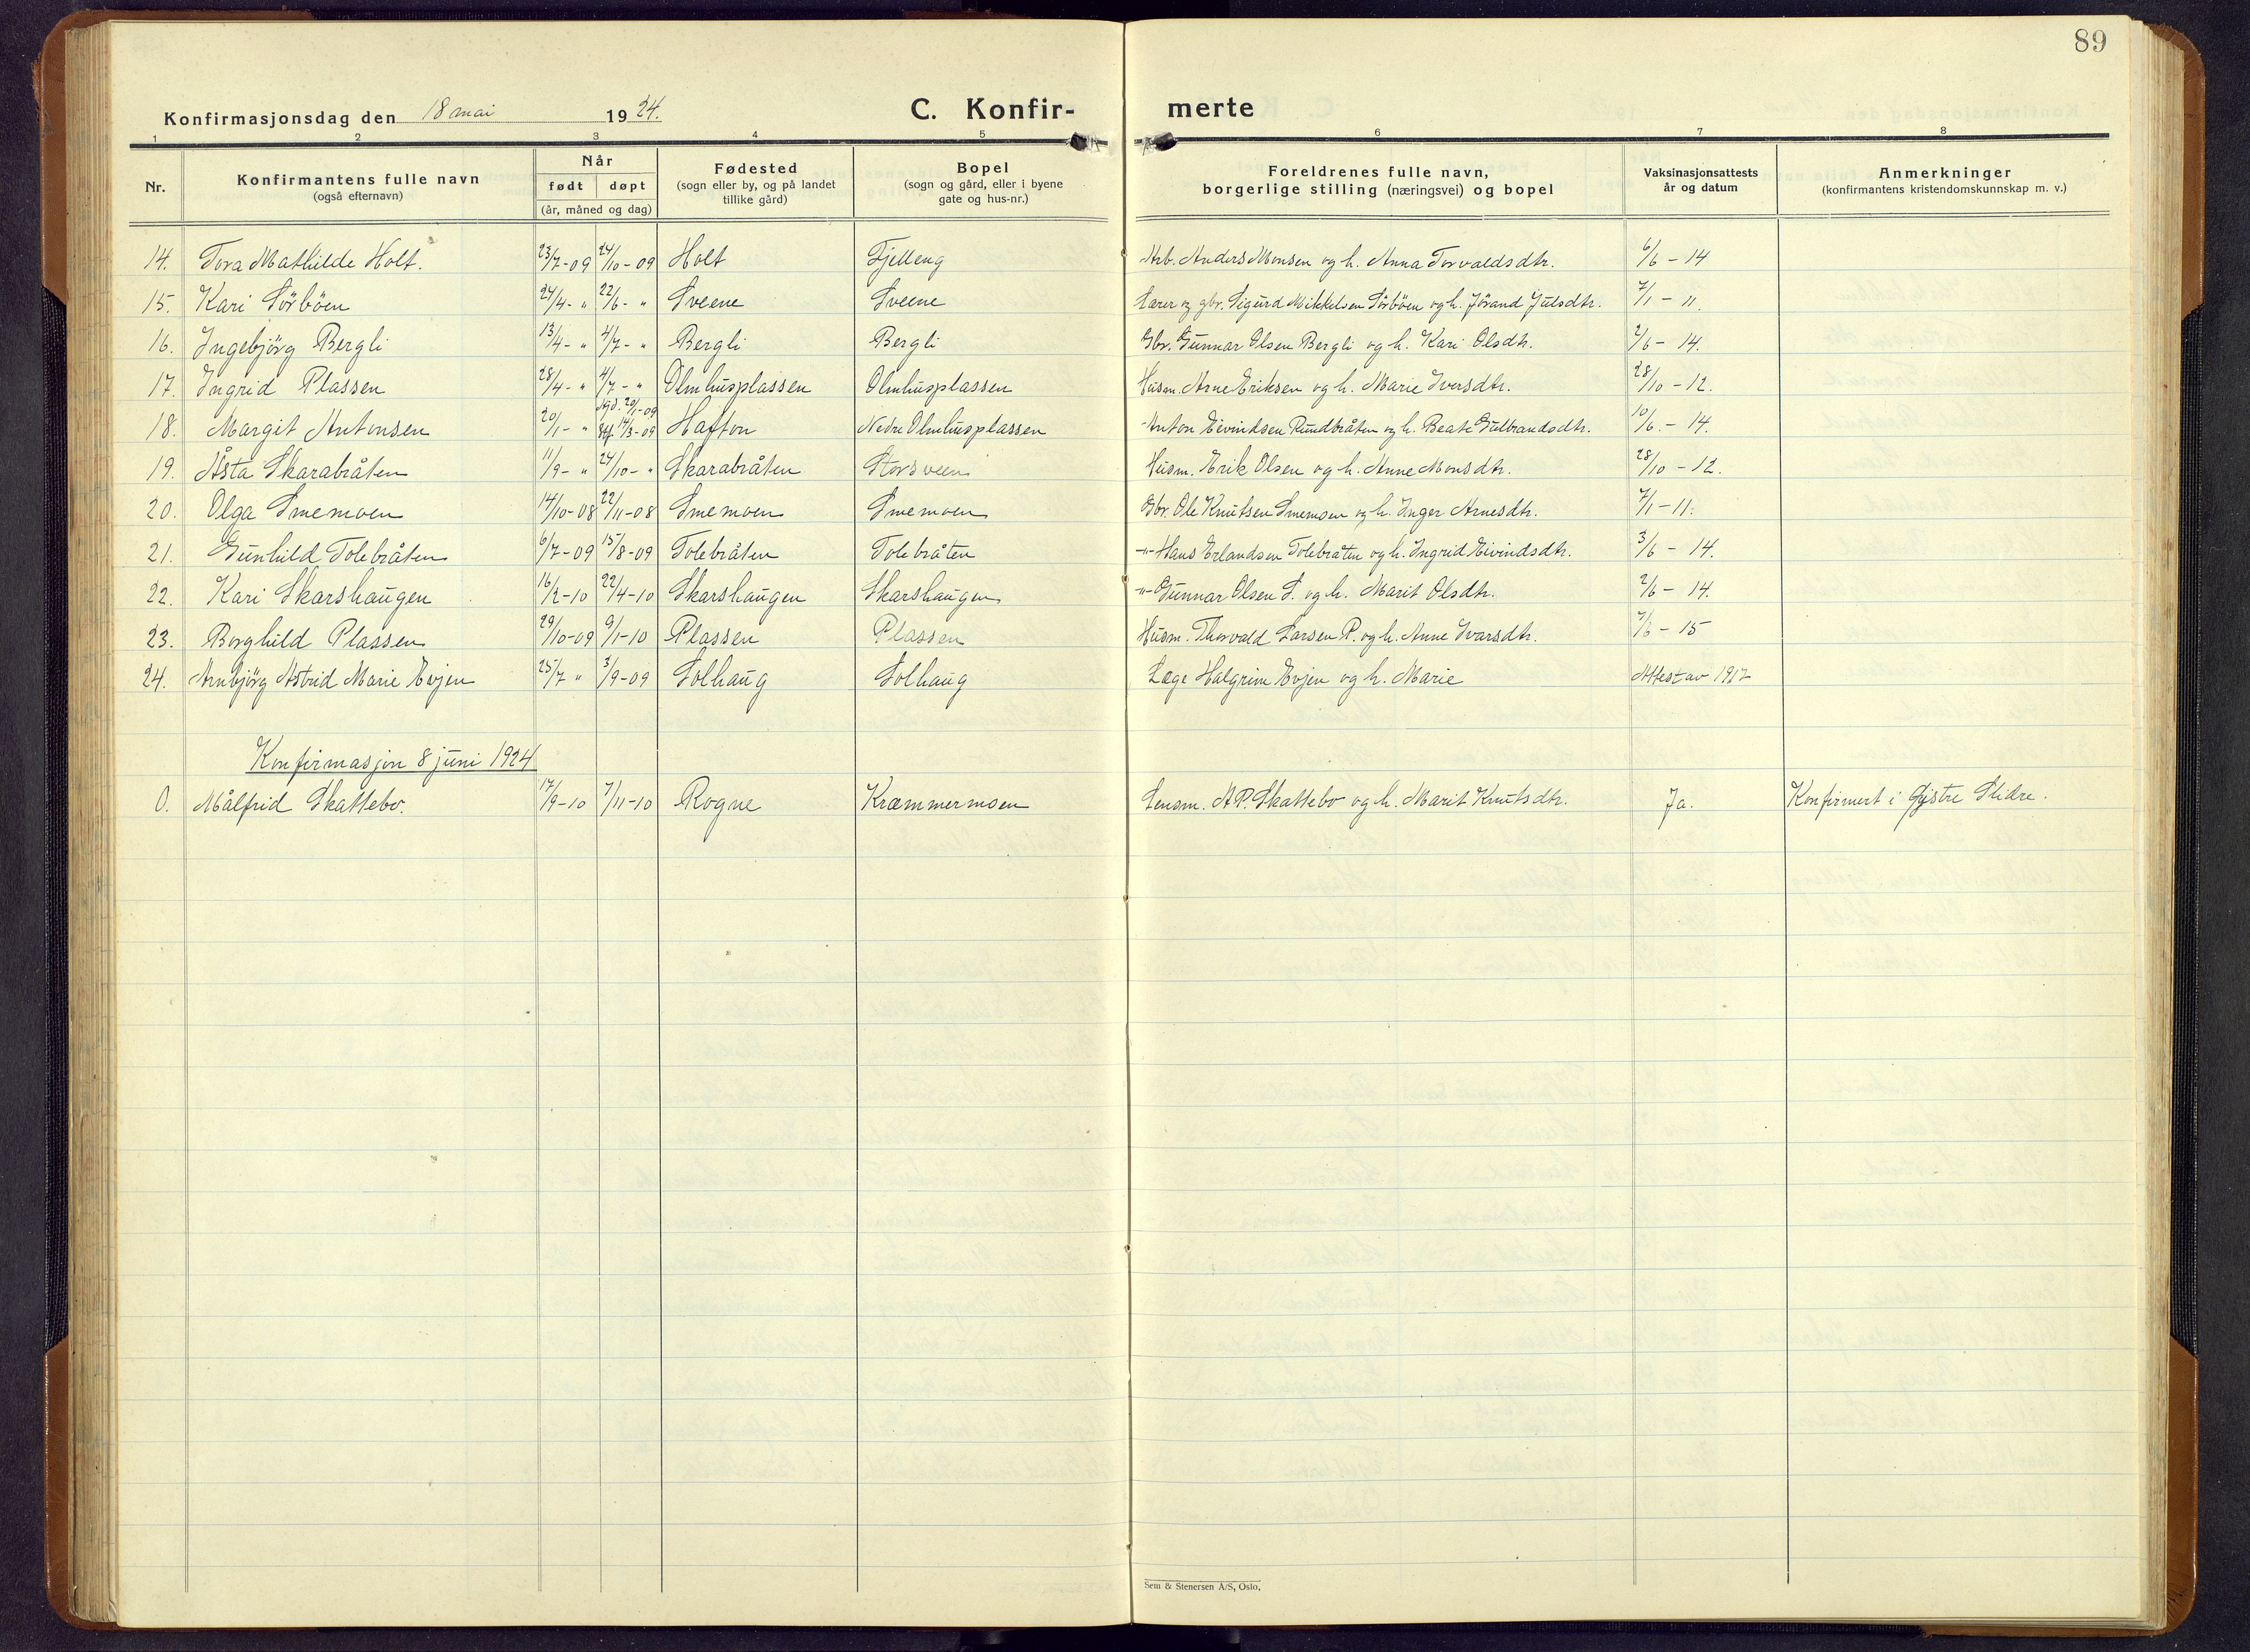 89
Konfirmasjonsdag den 18 mai 1924. C. Konfir- merte
1 2 3 4 5 6 7 8
Nr. Konfirmantens fulle navn (også efternavn) Når født døpt (år, måned og dag) Fødested (sogn eller by, og på landet tillike gård) Bopel (sogn og gård, eller i byene gate og hus-nr.) Foreldrenes fulle navn, borgerlige stilling (næringsvei) og bopel Vaksinasjonsattests år og datum Anmerkninger (konfirmantens kristendomskunnskap m. v.)
14. Tora Mathilde Holt. 23/7-09 24/10-09 Holt Fjelleng Arb. Anders Monsen og h. Anna Torvaldsdtr. 6/6 - 14
15. Kari Sörböen 24/4- " 22/6- " Sveene Sveene Lærer og gbr. Sigurd Mikkelsen Sörböen og h. Jörand Julsdtr. 7/1 - 11.
16. Ingebjörg Bergli 13/4- " 4/7- " Bergli Bergli Gbr. Gunnar Olsen Bergli og h. Kari Olsdtr. 2/6 - 14.
17. Ingrid Plassen 28/4- " 4/7- " Olmhusplassen Olmhusplassen Husm. Arne Eriksen og h. Marie Iversdtr. 28/10 - 12.
18. Margit Antonsen 20/1- " Hjd. 20/1-09 Stf. 14/3-09 Hafton Nedre Olmhusplassen Anton Eivindsen Rundbråten og h. Beate Gulbrandsdtr. 10/6. - 14.
19. Åsta Skarabråten 11/9- " 24/10- " Skarabråten Storsveen Husm. Erik Olsen og h. Anne Monsdtr. 28/10 - 12.
20. Olga Smemoen 14/10-08 22/11-08 Smemoen Smemoen Gbr. Ole Knutsen Smemoen og h. Inger Arnesdtr. 7/1 - 11.
21. Gunhild Tolebråten 6/7-09 15/8-09 Tolebråten Tolebråten -"- Hans Erlandsen Tolebråten og h. Ingrid Eivindsdtr. 3/6 - 14.
22. Kari Skarshaugen 16/2-10 22/4-10 Skarshaugen Skarshaugen -"- Gunnar Olsen S. og h. Marit Olsdtr. 2/6 - 14.
23. Borghild Plassen 29/10-09 9/1-10 Plassen Plassen Husm. Thorvald Larsen P. og h. Anne Ivarsdtr. 7/6 - 15
24. Arnbjörg Astrid Marie Evjen 25/7 " 3/9-09 Solhaug Solhaug Læge Halgrim Evjen og h. Marie Attest av 1917
Konfirmasjon 8 juni 1924
0. Målfrid Skattebo. 17/9-10 7/11-10 Rogne Kræmmermoen Lensm. A.P. Skattebo og h. Marit Knutsdtr. Ja. Konfirmert i Östre Slidre.
Sem & Stenersen A/S, Oslo.